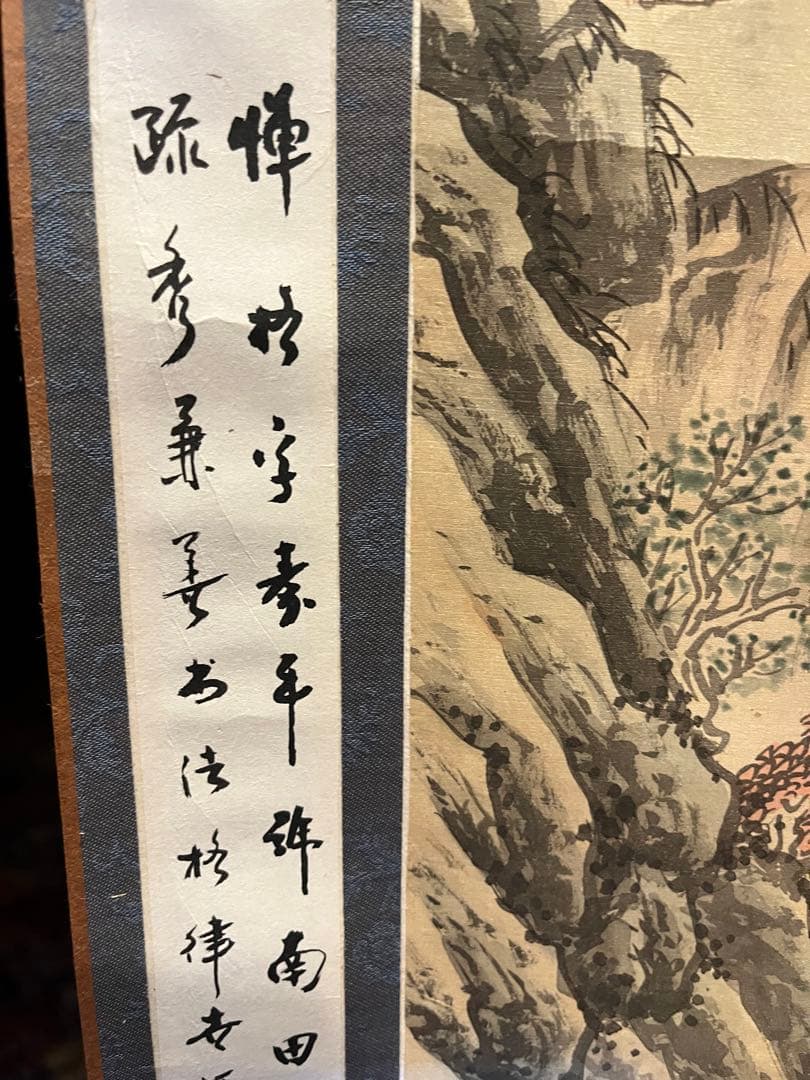 惲格字寿平號南田
疏秀兼善书法格律